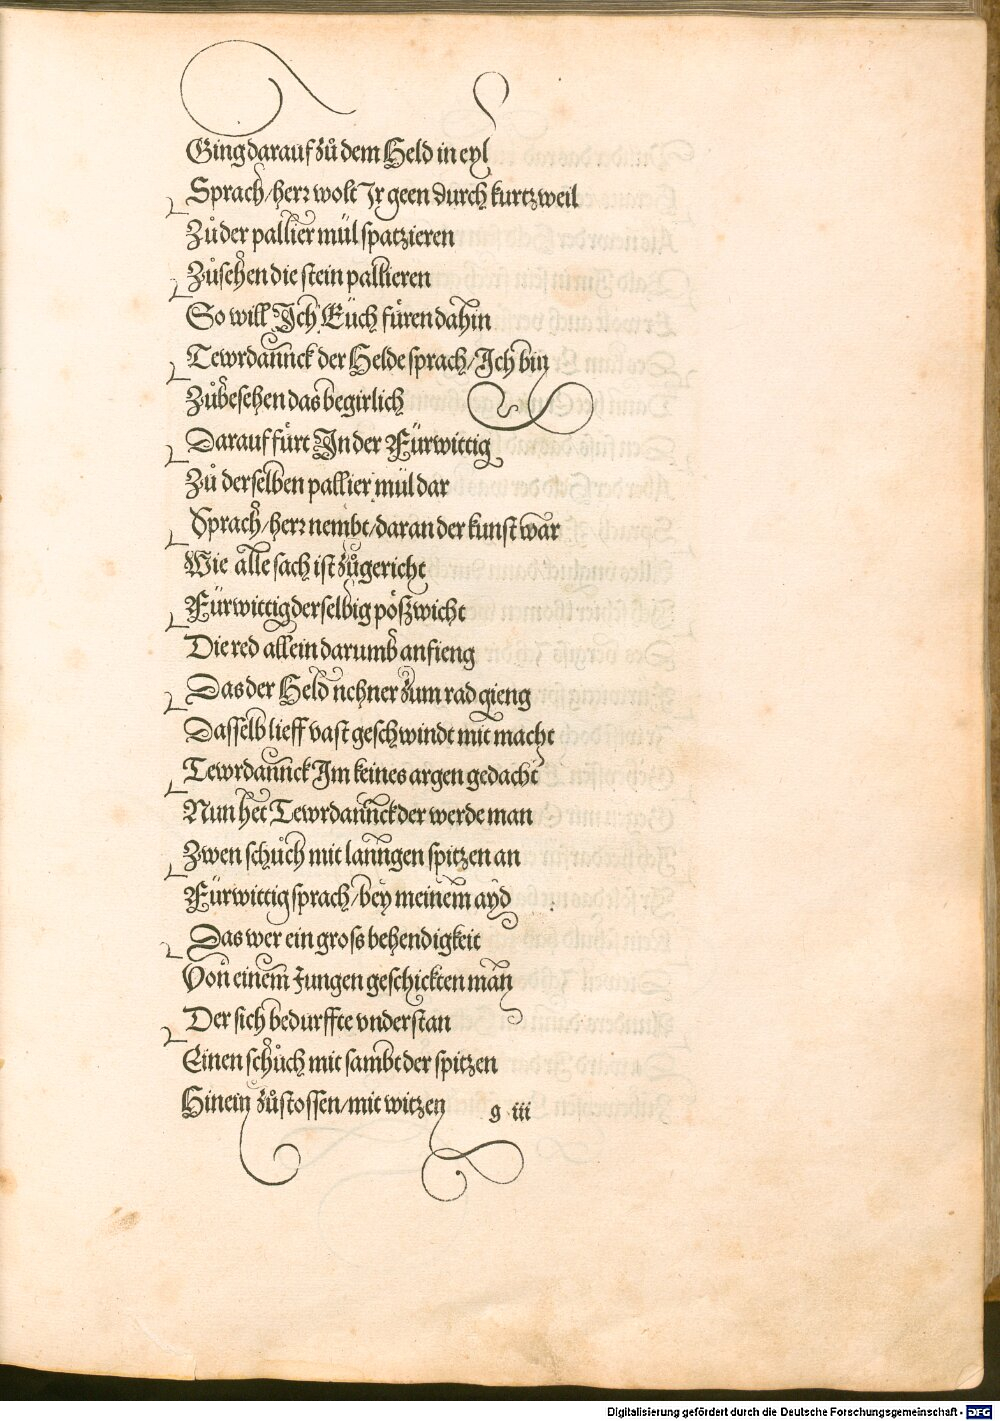 Ging darauf zů dem Held in eyl
Sprach/herr wolt Jr geen durch kurtzweil
Zů der pallier mül spatzieren
Zůsehen die stein pallieren
So will Jch Eüch füren dahin
Tewrdannck der Helde sprach/Jch bin
Zůbesehen das begirlich
Darauf fürt Jn der Fürwittig
Zů derselben pallier mül dar
Sprach/herr nembt/daran der kunst war
Wie alle sach ist zůgericht
Fürwittig derselbig pößwicht
Die red allein darumb anfieng
Das der Held nehner zum rad gieng
Dasselb lieff vast geschwindt mit macht
Tewrdannck Jm keines argen gedacht
Nun het Tewrdannck der werde man
Zwen schůch mit lanngen spitzen an
Fürwittig sprach/bey meinem ayd
Das wer ein gross behendigkeit
Von einem Jungen geschickten man
Der sich bedurffte vnderstan
Einen schůch mit sambt der spitzen
Hinein zůstossen/mit witzen
g iii
Digitalisierung gefördert durch die Deutsche Forschungsgemeinschaft - DFG